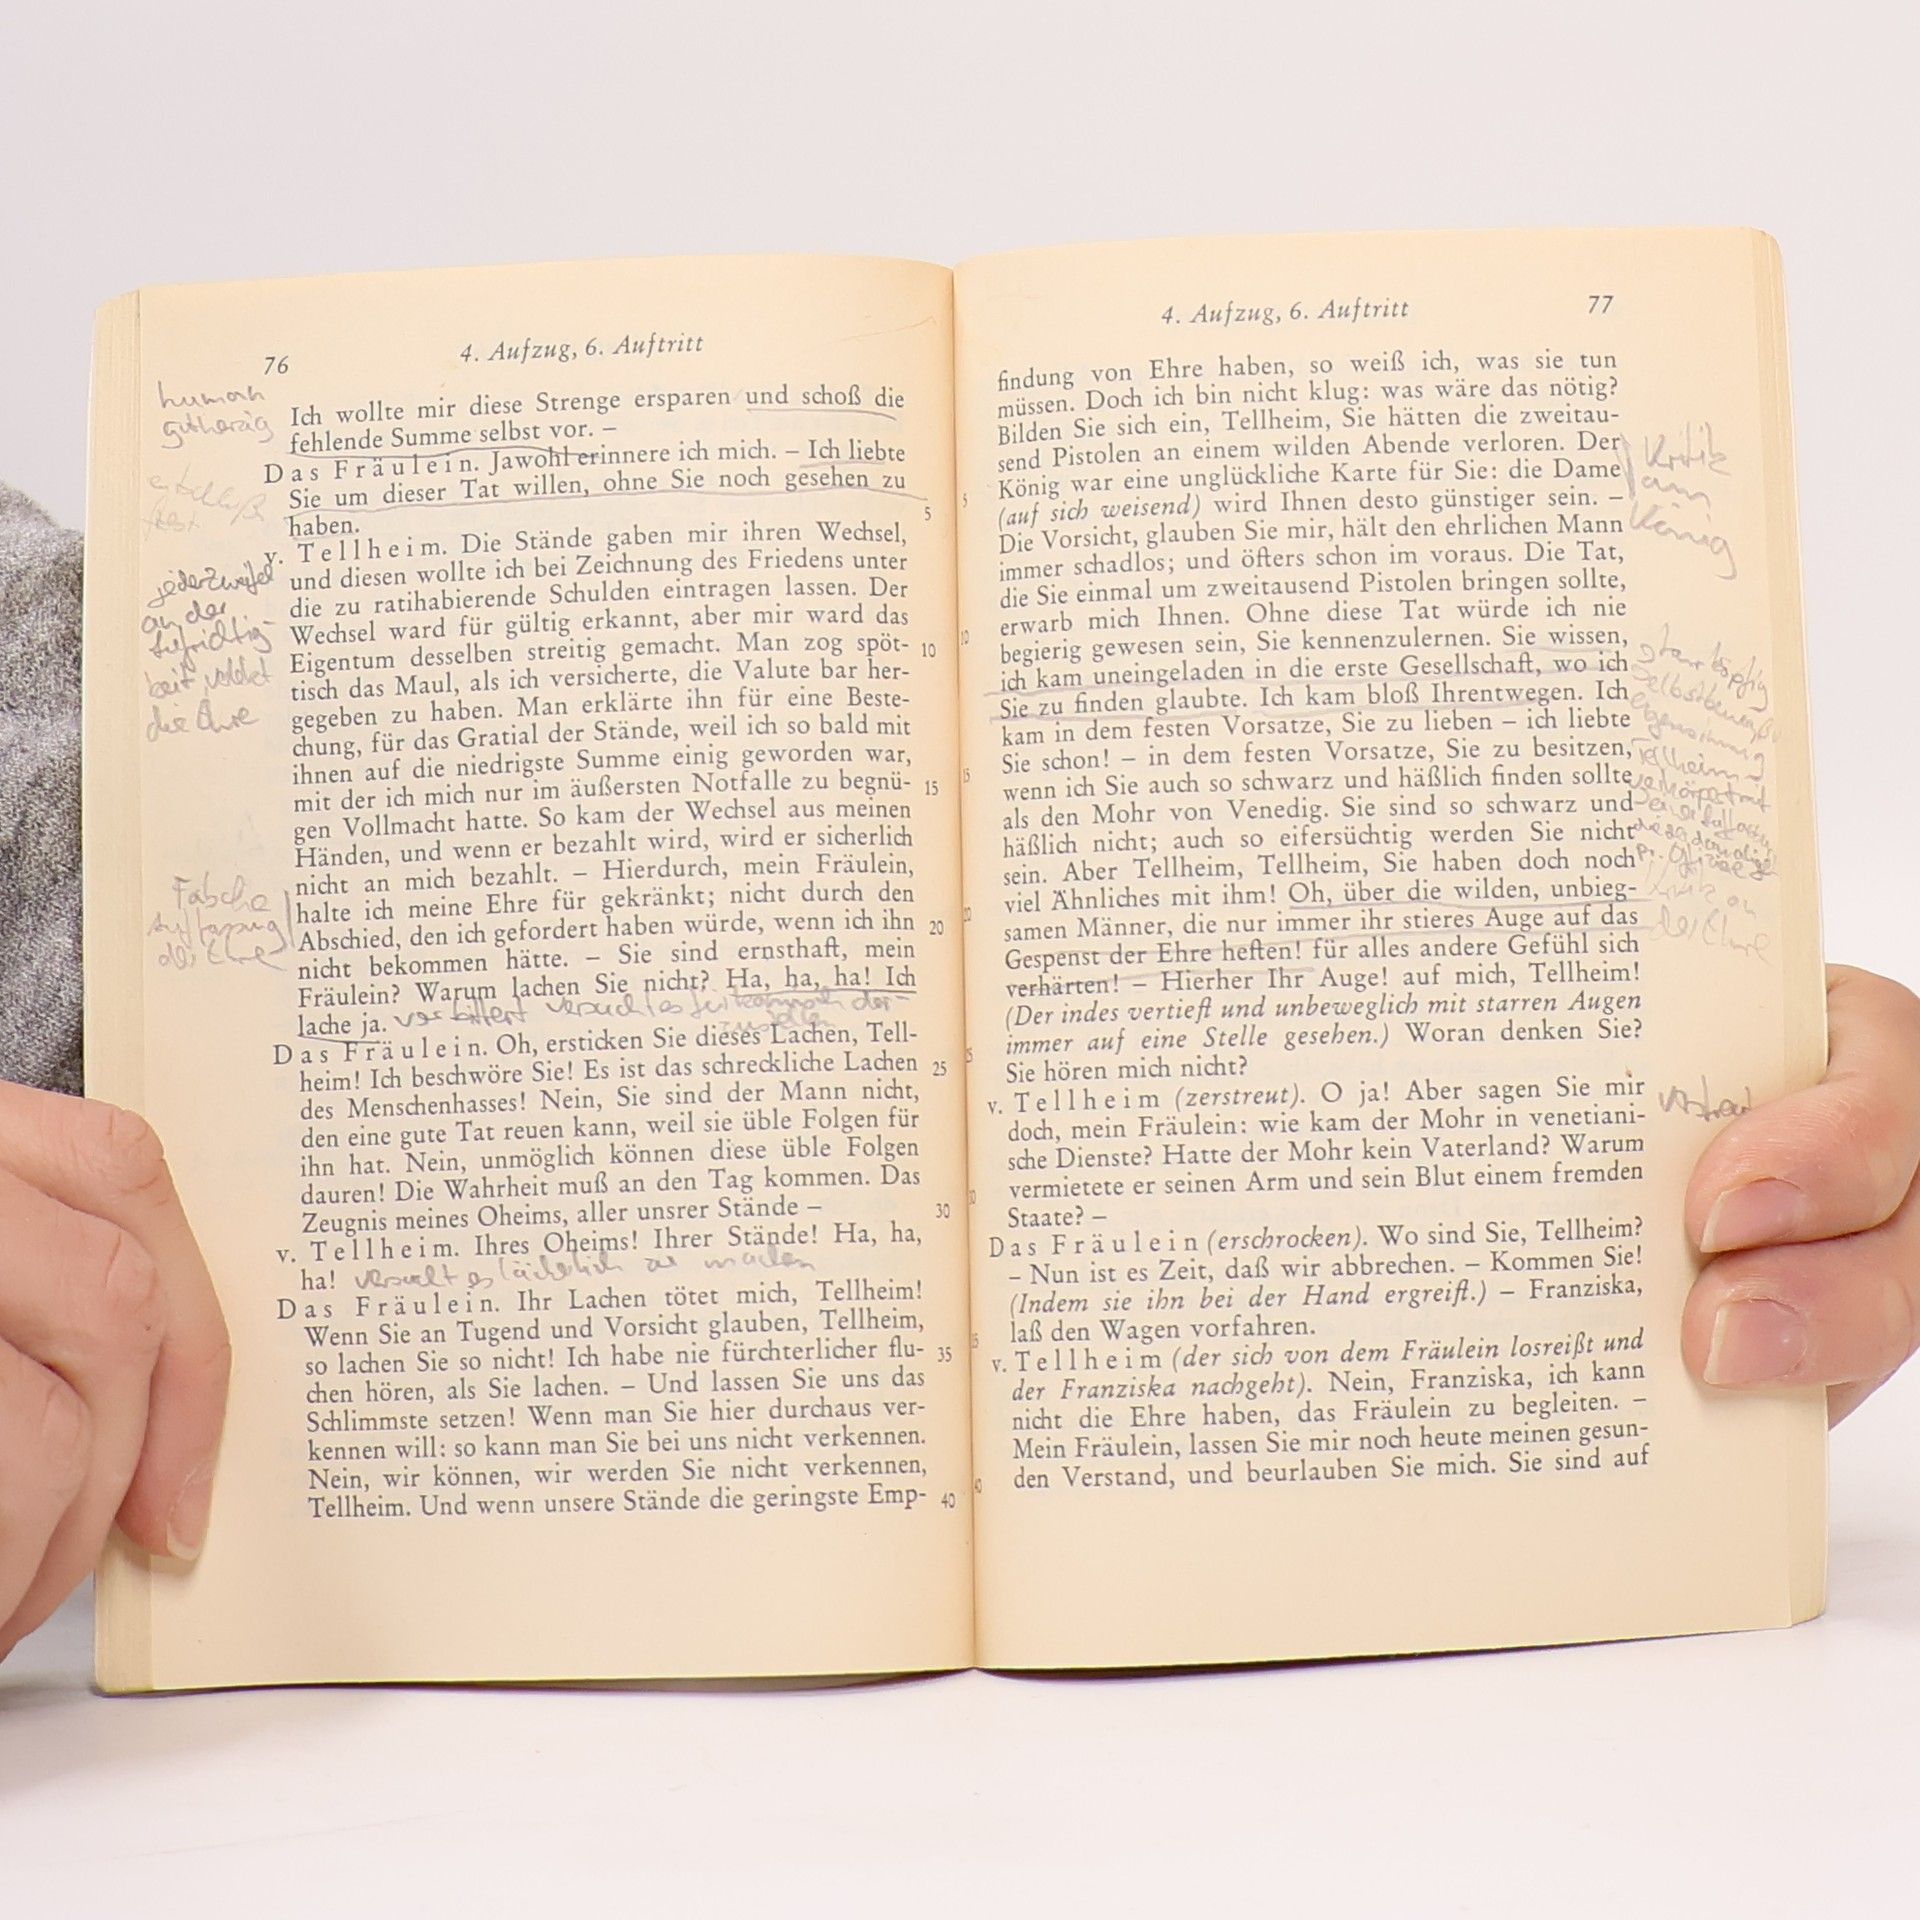 76
4. Aufzug, 6. Auftritt
human
gutherzig
Ich wollte mir diese Strenge ersparen und schoß die
fehlende Summe selbst vor. –
Das Fräulein. Jawohl erinnere ich mich. – Ich liebte
Sie um dieser Tat willen, ohne Sie noch gesehen zu
haben.
5
v. Tellheim. Die Stände gaben mir ihren Wechsel,
und diesen wollte ich bei Zeichnung des Friedens unter
die zu ratihabierende Schulden eintragen lassen. Der
Wechsel ward für gültig erkannt, aber mir ward das
Eigentum desselben streitig gemacht. Man zog spöt- 10
tisch das Maul, als ich versicherte, die Valute bar her-
gegeben zu haben. Man erklärte ihn für eine Beste-
chung, für das Gratial der Stände, weil ich so bald mit
ihnen auf die niedrigste Summe einig geworden war,
mit der ich mich nur im äußersten Notfalle zu begnü- 15
gen Vollmacht hatte. So kam der Wechsel aus meinen
Händen, und wenn er bezahlt wird, wird er sicherlich
nicht an mich bezahlt. – Hierdurch, mein Fräulein,
halte ich meine Ehre für gekränkt; nicht durch den
Abschied, den ich gefordert haben würde, wenn ich ihn 20
nicht bekommen hätte. – Sie sind ernsthaft, mein
Fräulein? Warum lachen Sie nicht? Ha, ha, ha! Ich
lache ja. verbittert versucht es
Das Fräulein. Oh, ersticken Sie dieses Lachen, Tell-
heim! Ich beschwöre Sie! Es ist das schreckliche Lachen 25
des Menschenhasses! Nein, Sie sind der Mann nicht,
den eine gute Tat reuen kann, weil sie üble Folgen für
ihn hat. Nein, unmöglich können diese üble Folgen
dauren! Die Wahrheit muß an den Tag kommen. Das
Zeugnis meines Oheims, aller unsrer Stände – 30
v. Tellheim. Ihres Oheims! Ihrer Stände! Ha, ha,
ha! versucht es lächerlich zu machen
Das Fräulein. Ihr Lachen tötet mich, Tellheim!
Wenn Sie an Tugend und Vorsicht glauben, Tellheim,
so lachen Sie so nicht! Ich habe nie fürchterlicher flu- 35
chen hören, als Sie lachen. – Und lassen Sie uns das
Schlimmste setzen! Wenn man Sie hier durchaus ver-
kennen will: so kann man Sie bei uns nicht verkennen.
Nein, wir können, wir werden Sie nicht verkennen,
Tellheim. Und wenn unsere Stände die geringste Emp- 40
jeder Zweifel
an der
Aufrichtig-
keit verletzt
die Ehre
Falsche
Auffassung
der Ehre
4. Aufzug, 6. Auftritt
77
findung von Ehre haben, so weiß ich, was sie tun
müssen. Doch ich bin nicht klug: was wäre das nötig?
Bilden Sie sich ein, Tellheim, Sie hätten die zweitau-
send Pistolen an einem wilden Abende verloren. Der
König war eine unglückliche Karte für Sie: die Dame
5 (auf sich weisend) wird Ihnen desto günstiger sein. –
Die Vorsicht, glauben Sie mir, hält den ehrlichen Mann
immer schadlos; und öfters schon im voraus. Die Tat,
die Sie einmal um zweitausend Pistolen bringen sollte,
erwarb mich Ihnen. Ohne diese Tat würde ich nie
10 begierig gewesen sein, Sie kennenzulernen. Sie wissen,
ich kam uneingeladen in die erste Gesellschaft, wo ich
Sie zu finden glaubte. Ich kam bloß Ihrentwegen. Ich
kam in dem festen Vorsatze, Sie zu lieben – ich liebte
Sie schon! – in dem festen Vorsatze, Sie zu besitzen,
15 wenn ich Sie auch so schwarz und häßlich finden sollte
als den Mohr von Venedig. Sie sind so schwarz und
häßlich nicht; auch so eifersüchtig werden Sie nicht
sein. Aber Tellheim, Tellheim, Sie haben doch noch
viel Ähnliches mit ihm! Oh, über die wilden, unbieg-
20 samen Männer, die nur immer ihr stieres Auge auf das
Gespenst der Ehre heften! für alles andere Gefühl sich
verhärten! – Hierher Ihr Auge! auf mich, Tellheim!
(Der indes vertieft und unbeweglich mit starren Augen
immer auf eine Stelle gesehen.) Woran denken Sie?
25 Sie hören mich nicht?
v. Tellheim (zerstreut). O ja! Aber sagen Sie mir
doch, mein Fräulein: wie kam der Mohr in venetiani-
sche Dienste? Hatte der Mohr kein Vaterland? Warum
vermietete er seinen Arm und sein Blut einem fremden
30 Staate? –
Das Fräulein (erschrocken). Wo sind Sie, Tellheim?
– Nun ist es Zeit, daß wir abbrechen. – Kommen Sie!
(Indem sie ihn bei der Hand ergreift.) – Franziska,
laß den Wagen vorfahren.
35 v. Tellheim (der sich von dem Fräulein losreißt und
der Franziska nachgeht). Nein, Franziska, ich kann
nicht die Ehre haben, das Fräulein zu begleiten. –
Mein Fräulein, lassen Sie mir noch heute meinen gesun-
den Verstand, und beurlauben Sie mich. Sie sind auf
40
Kritik
am
König
starrköpfig
Tellheim
Kritik an
der Ehre